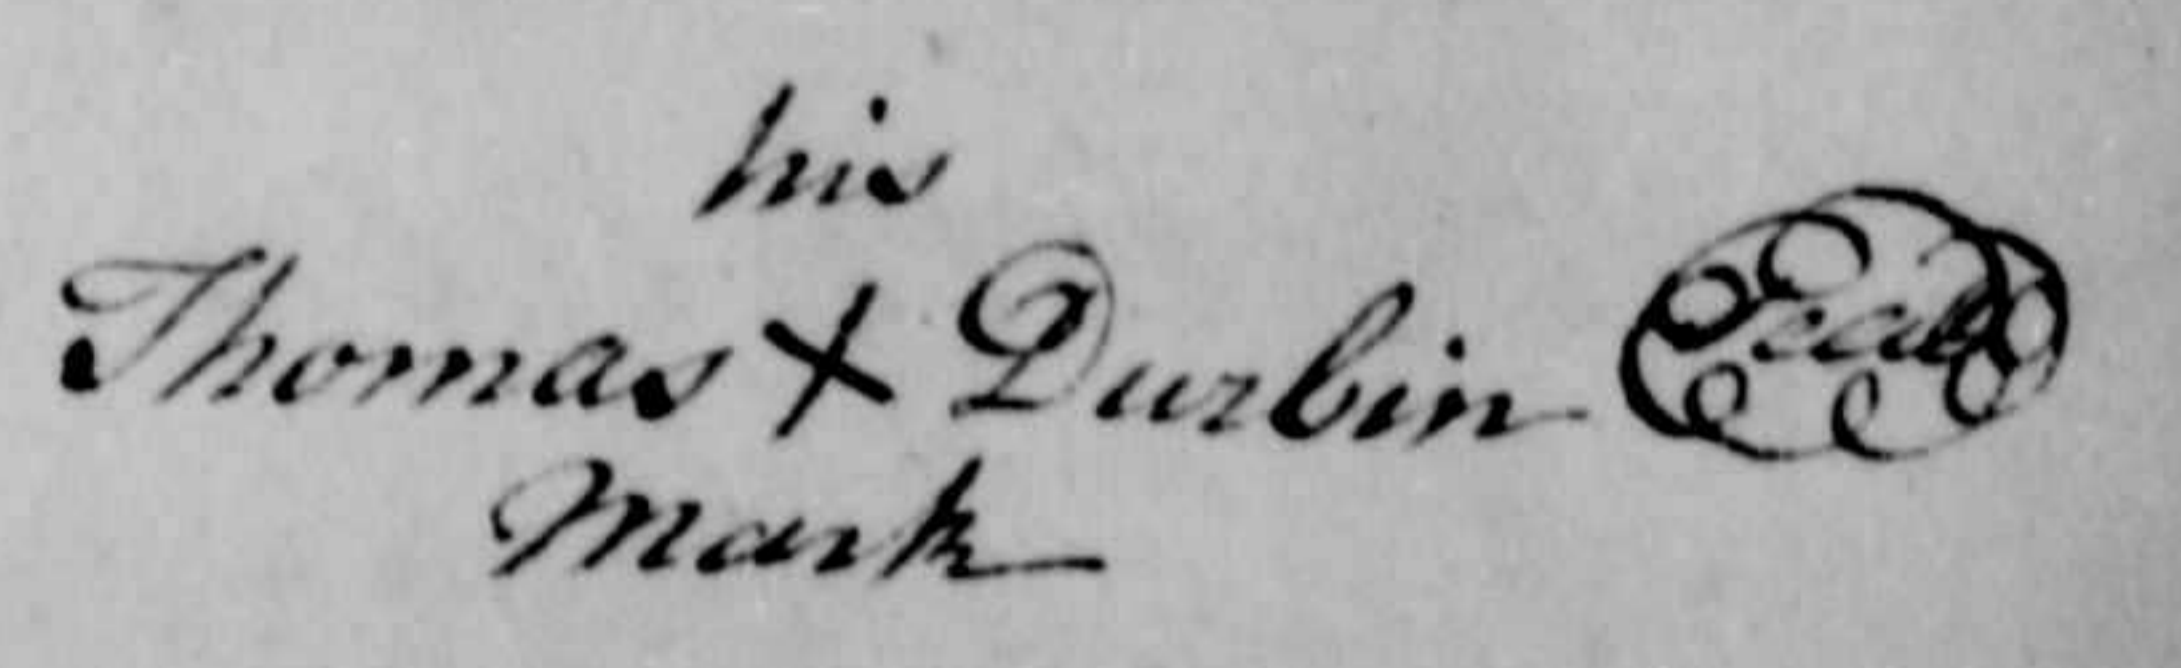 his
Thomas X Durbin Seal
Mark